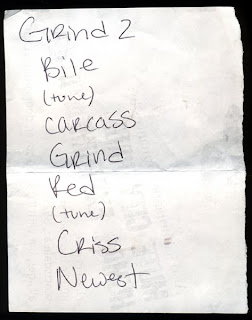 Grind 2
Bile
(tune)
Carcass
Grind
Red
(tune)
Criss
Newest